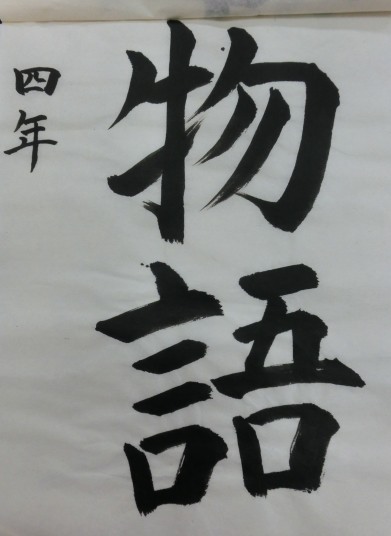 物語
四年